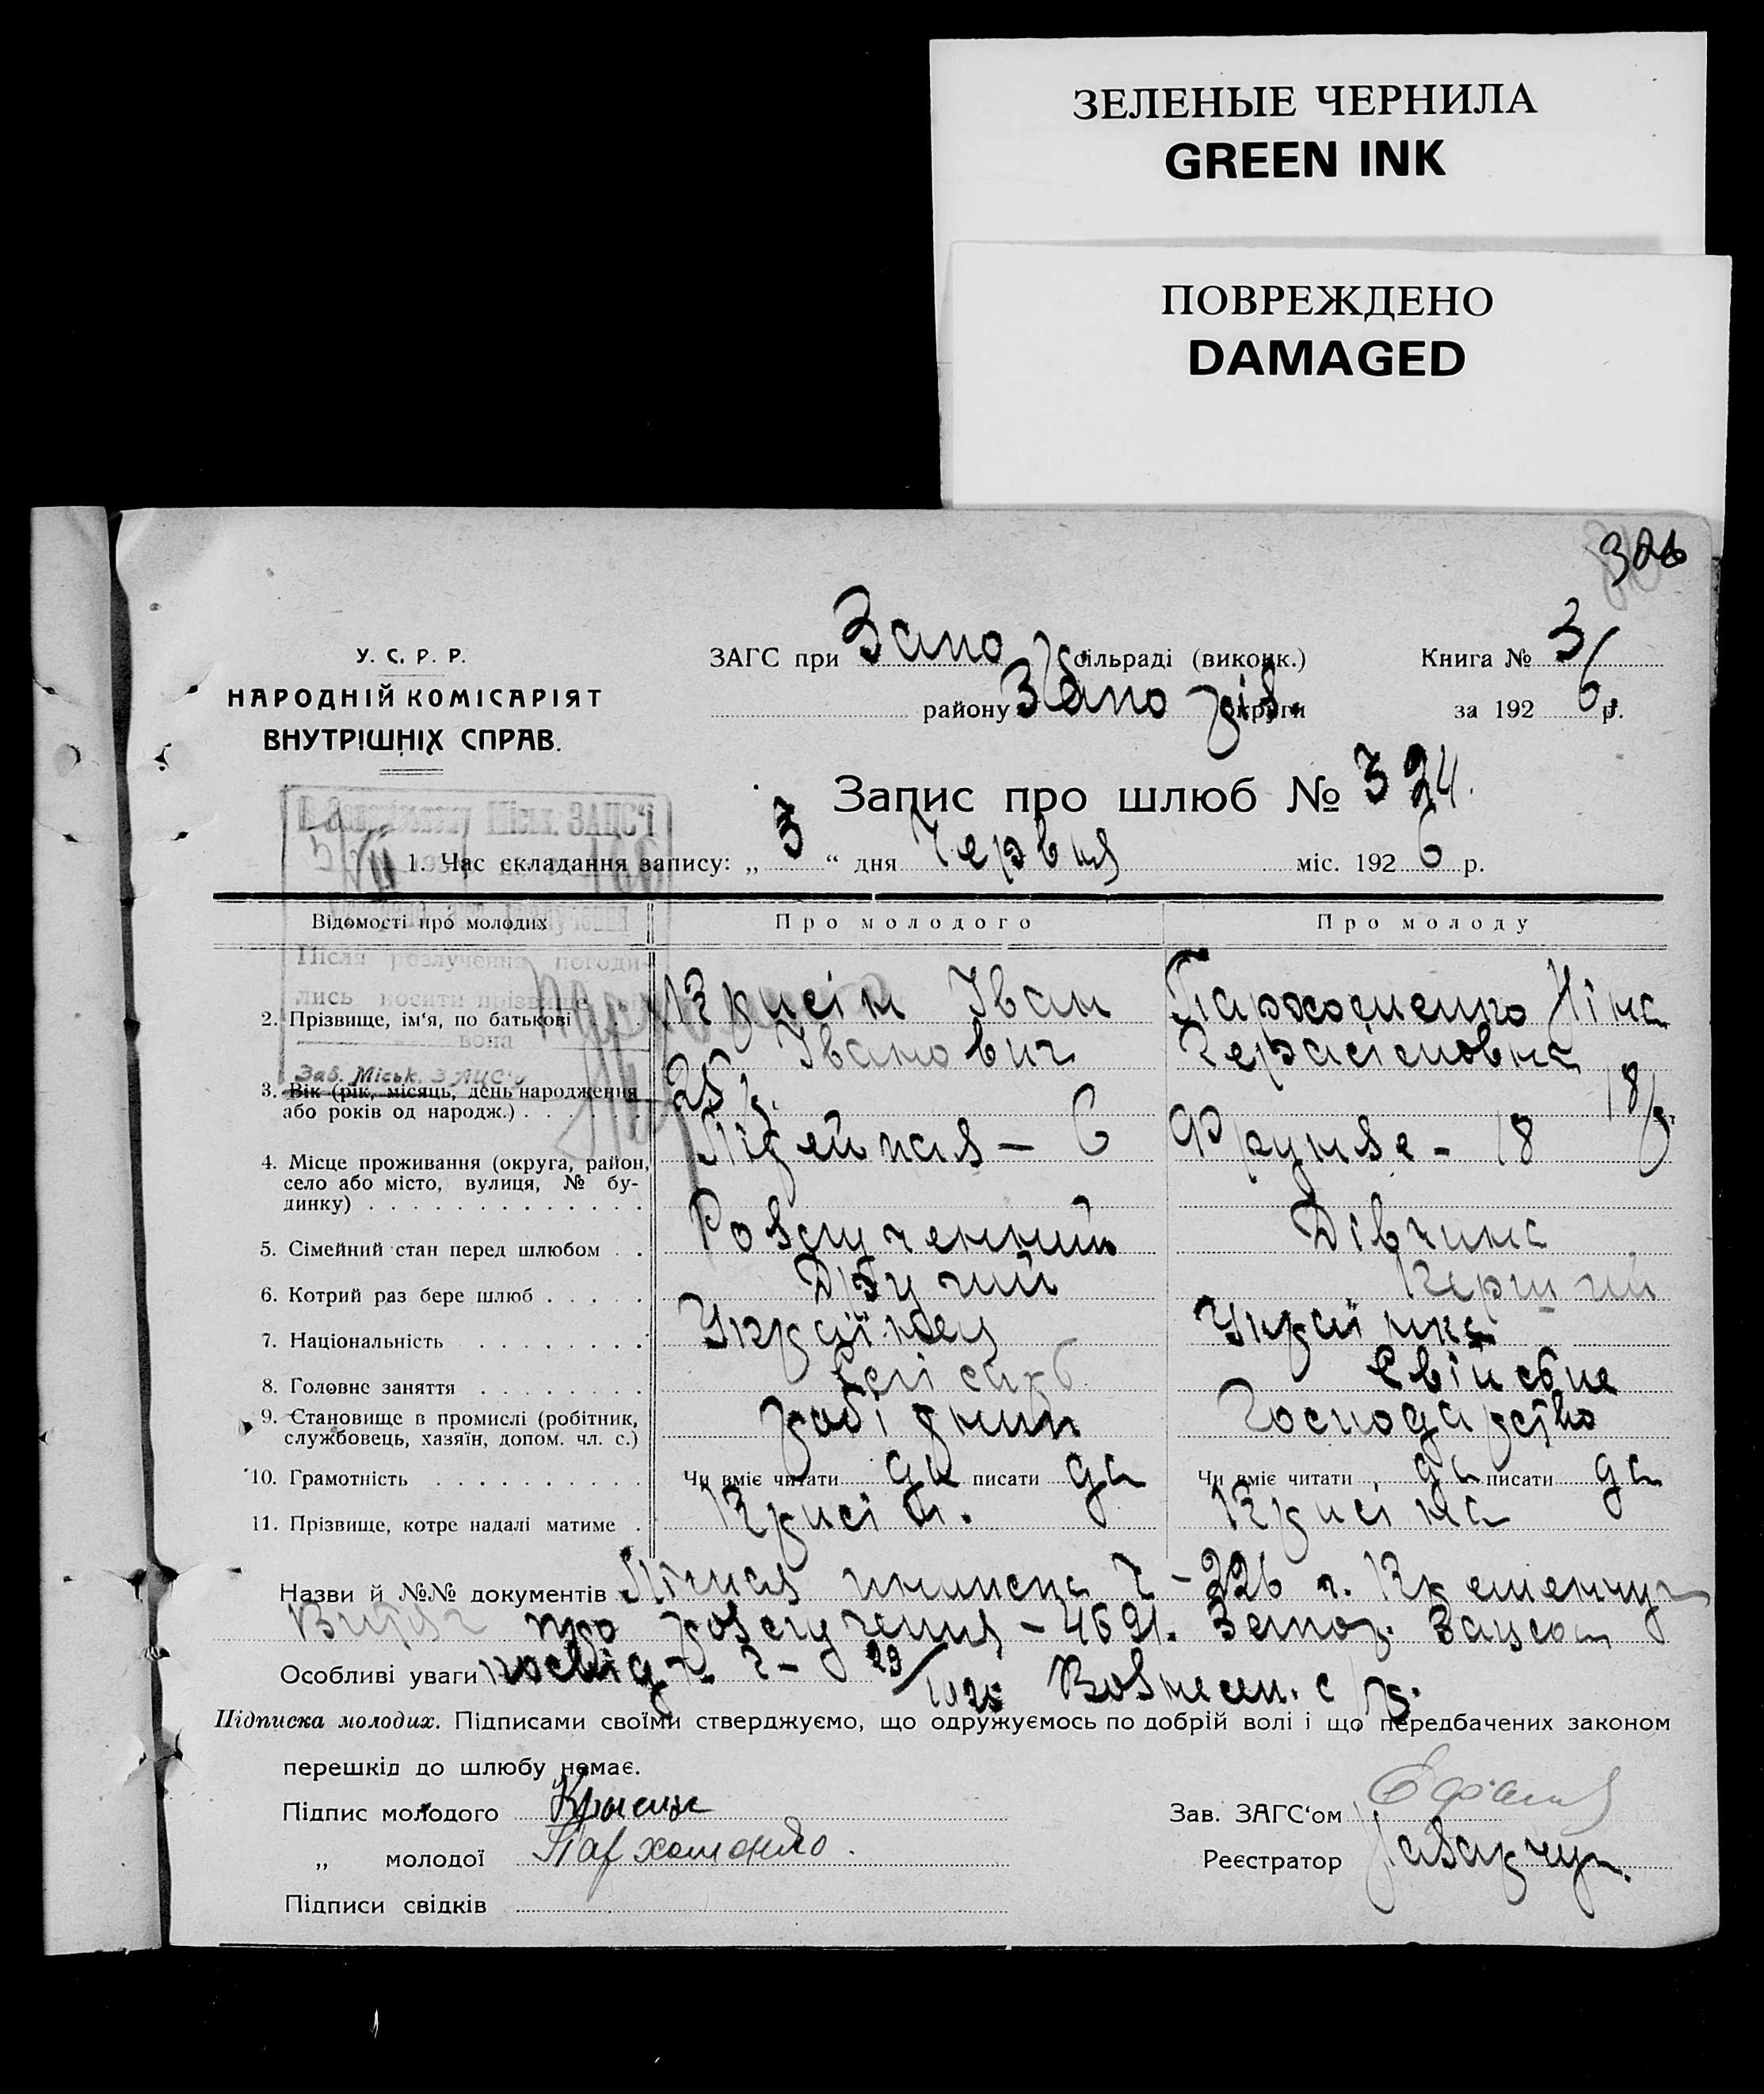 ЗЕЛЕНЫЕ ЧЕРНИЛА
GREEN INK
ПОВРЕЖДЕНО
DAMAGED
306
У. С. Р. Р.
НАРОДНІЙ КОМІСАРІЯТ
ВНУТРІШНІХ СПРАВ.
ЗАГС при Запо сільраді (виконк.)
Книга № 3
району Запоріз. округи
за 192 6 р.
Запис про шлюб № 324.
Міськ. ЗАГС'і
1. Час складання запису: „ 3 “ дня Червня міс. 192 6 р.
Відомості про молодих
Про молодого
Про молоду
Після розлучення погоди-
лись носити прізвище
вона
Заб. Міськ. ЗАЦС'у
2. Прізвище, ім‘я, по батькові . . . Крисін Іван Пархоменко Ніна
Іванович Герасімовна
3. Вік (рік, місяць, день народження
або років од народж.) . . . . . . 25 р. 18 р.
4. Місце проживання (округа, район,
село або місто, вулиця, № бу-
динку) . . . . . . . . . . . . . Лідейная – 6 Фрунзе - 18
5. Сімейний стан перед шлюбом . . Розлученний Дівчина
6. Котрий раз бере шлюб . . . . . Другий Перший
7. Національність . . . . . . . Українец Українка
8. Головне заняття . . . . . . . . Свійське
9. Становище в промислі (робітник,
службовець, хазяїн, допом. чл. с.) робітник Господарство
10. Грамотність . . . . . . . . . . Чи вміє читати да писати да Чи вміє читати да писати да
11. Прізвище, котре надалі матиме . Крисін. Крисіна
Назви й №№ документів Лічная книжка ч – 226 г. Кременчуг
Витяг про розлучення – 4691. Запор. Загсом
Особливі уваги посвід. ч – 29/1025 Вознесен. с/р.
Підписка молодих. Підписами своїми стверджуємо, що одружуємось по добрій волі і що передбачених законом
перешкід до шлюбу немає.
Підпис молодого Крысин
Зав. ЗАГС‘ом
„ молодої Пархоменко.
Реєстратор
Підписи свідків